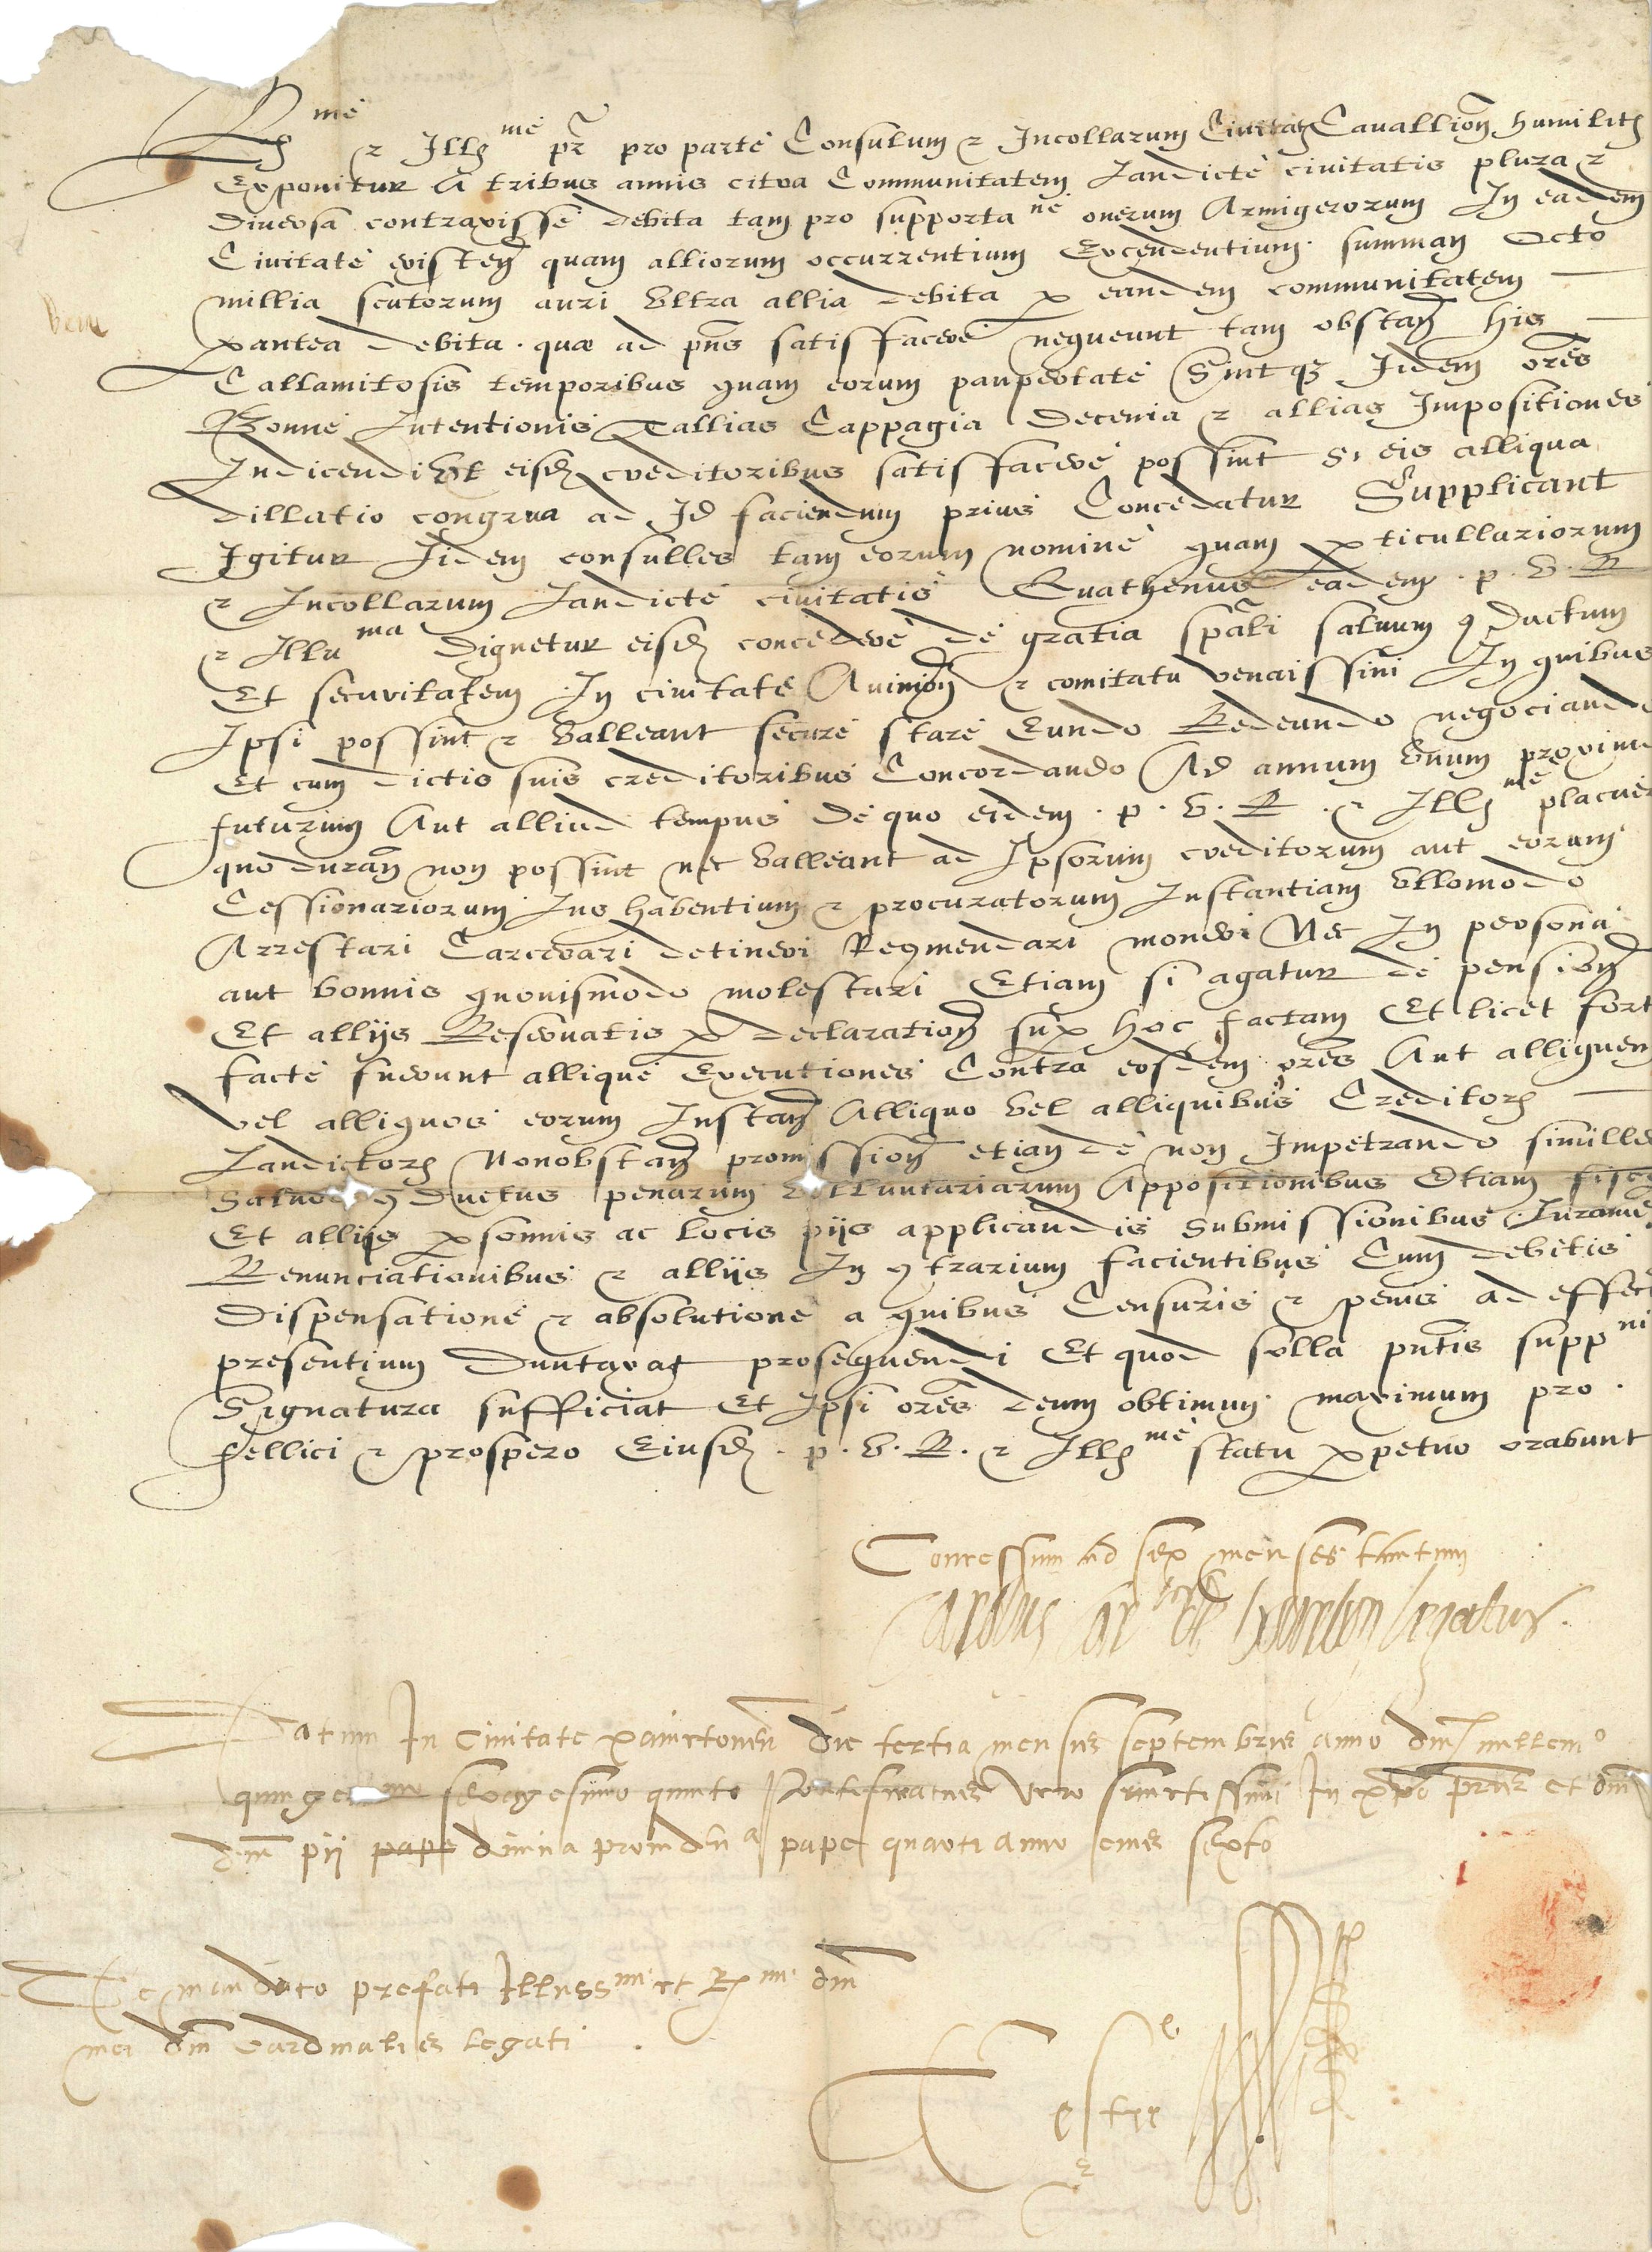 R me et Ill me pr pro parte Consulum et Incollarum Civitatis Cavallion humiliter
Exponitur A tribus annis citra Communitatem Jandicte civitatis plura et
diversa contraxisse debita tam pro supporta ne onerum Armigerorum In eadem
Civitate existen quam alliorum occurrentium Excendentium summam Octo
millia scutorum auri Ultra allia debita per eandem communitatem
per antea debita . quæ ad pns satisfacere nequeunt tam obstan His
Callamitosis temporibus quam eorum paupertate Sintq3 Iidem ores
Bonne Intentionis Tallias Cappagia Decenia et allias Impositiones
Indicendi Ut eisd creditoribus satisfacere possint Si eis alliqua
dillatio congrua ad Id faciendum prius Concedatur Supplicant
Igitur Iidem consulles tam eorum nomine quam perticullariorum
et Incollarum Jandicte civitatis Quathenus eadem . p . V . R
et Illu ma Dignetur eisd concedere de gratia spali salvum 9ductum
Et securitatem In civitate Avinion et comitatu venaissini In quibus
Ipsi possint et Valleant secure stare Eundo Redeundo negociando
Et cum dictis suis creditoribus Concordando Ad annum Unum proxime
futurum Aut alliud tempus de quo eidem . p . V . R . et Ill me placuer
quo duran non possint nec Valleant ad Ipsorum creditorum aut eorum
Cessionariorum Jus habentium et procuratorum Instantiam Ullomodo
Arrestari Carcerari detineri Reqmendari moneri Nec In persona
aut bonnis quovismodo molestari Etiam si agatur de pension
Et alliis Reservatis per declaration super hoc factam Et licet fort
facte fuerunt allique Executiones Contra eosdem ores Aut alliquem
vel alliquos eorum Instan Alliquo Vel alliquibus Creditor
Jandictor Nonobstan promission etiam de non Impetrando simille
Salvo 9ductus penarum Volluntariarum Appositionibus Etiam fisc
Et alliis personnis ac locis piis applicandis Submissionibus Jurame
Renunciationibus et alliis In 9trarium facientibus Cum debitis
Dispensatione et absolutione a quibus Censuris et penis ad effect
presentium Duntaxat prosequendi Et quod solla pntis supp ni
Signatura sufficiat Et Ipsi ores deum obtimum maximum pro
fellici et prospero Eiusd . p . V . R . et Ill me statu perpetuo orabunt
Concessum ad sex menses tantum
Carolus car lis de bourbon legatus .
Datum In Civitate xanctonen die tertia mensis septembris anno dni millemo
quinge mo sexagesimo quinto Pontificatus Vero sanctissimi In xpo pris et dni
dni pii pape divina providn a pape quarti anno eius sexto
De mandato prefati Illuss mi et R mi dni
mei dni Cardinalis legati .